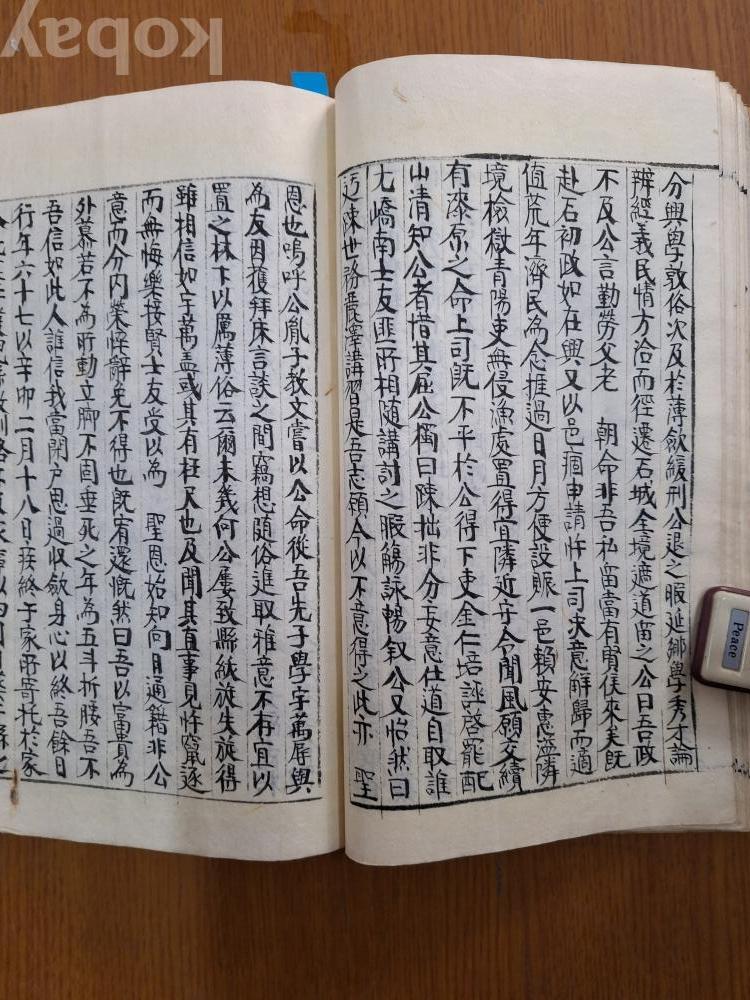 分興學敦俗次及於薄歛緩刑公退之暇延鄉學秀才論
辨經義民情方洽而徑遷石城全境遮道留之公曰吾政
不及公言勤勞父老 朝命非吾私留當有賢侯來矣旣
赴石初政如在興又以邑痼申請忤上司决意解歸而適
值荒年濟民為念推過日月方便設賑一邑賴安惠遊隣
境檢獄青陽吏無侵漁處置得宜隣近守令聞風願交續
有漆原之命上司旣不平於公得下吏金仁培誣啓罷配
山清知公者惜其屈公獨曰踈拙非分妄意仕道自取誰
尤嶠南士友匪所相隨講討之暇觴詠暢叙公又怡然曰
迃踈世務麗澤講習是吾志願今以不意得之此亦 聖
恩也嗚呼公胤子敎文嘗以公命從吾先子學字萬辱與
為友因獲拜床言談之間竊想隨俗進取雅意不存宜以
置之林下以厲薄俗云爾未幾何公屢致縣紱旋失旋得
雖相信如宇萬盖或其有枉尺也及聞其直事見忤竄逐
而無悔樂接賢士友受以為 聖恩始知向日通籍非公
意而分內榮悴辭免不得也旣宥還慨然曰吾以寠貧為
外慕若不為所動立脚不固垂死之年為五斗折腰吾不
吾信如此人誰信我當閉户思過收歛身心以終吾餘日
行年六十七以辛卯二月十八日疾終于家所寄托於家
Peace
Kobay